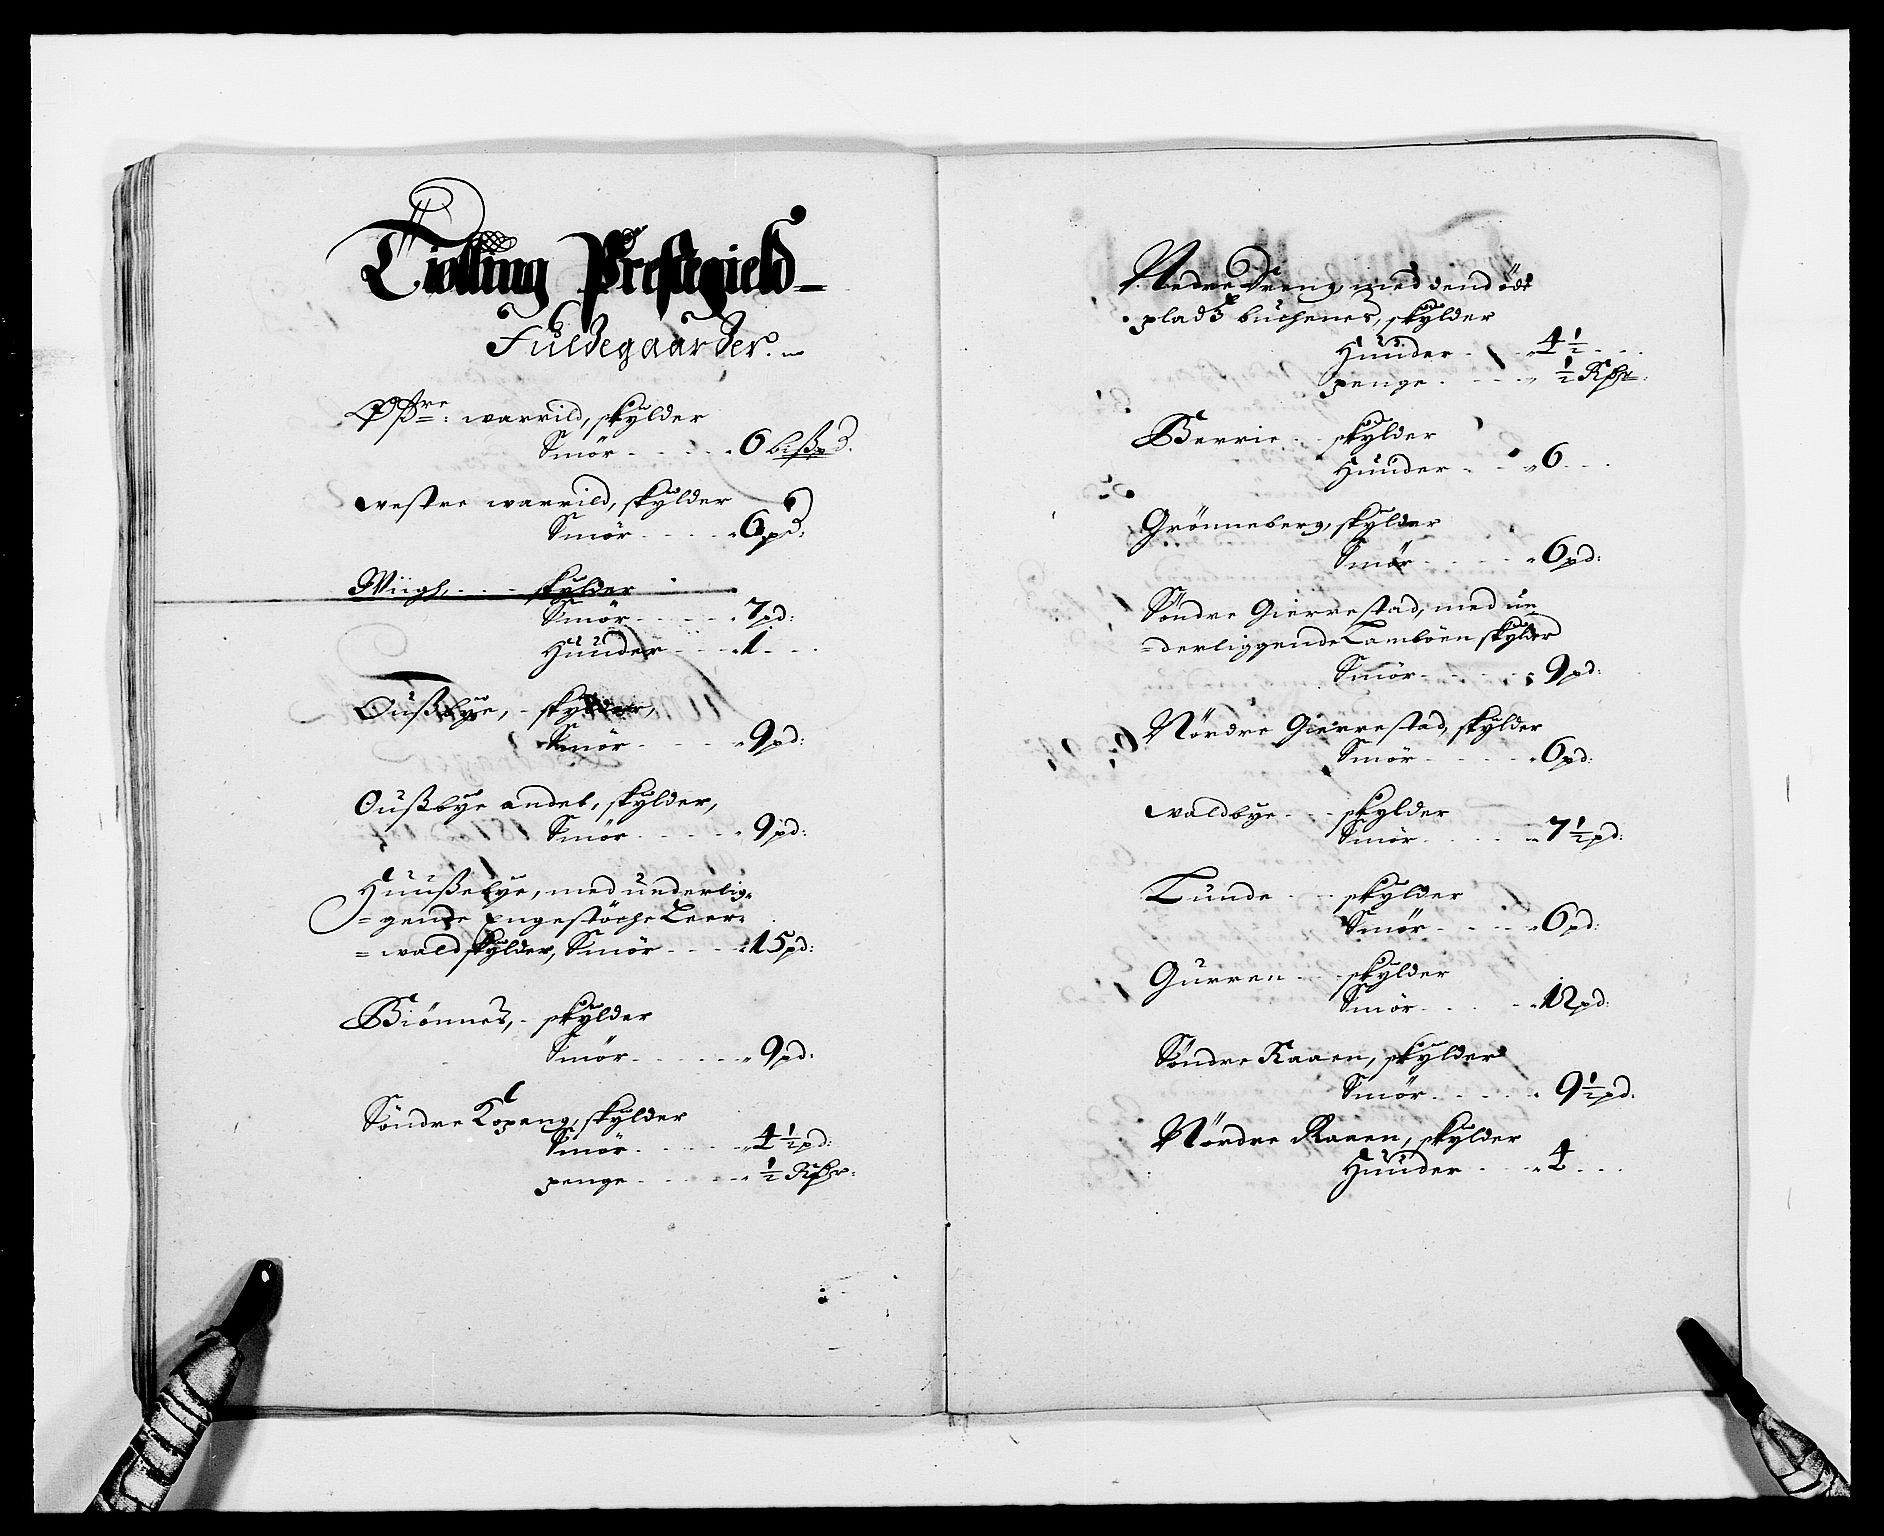 Tiølling Prestegield
Fuldegaarder.
Østre: warrild, skylder
Smør - - - - 6 bißpd.
westre warrild, skylder
Smör - - - - 6 pd:
Wiigh, - - - skylder
Smör - - - - 7 pd:
Huuder - - - 1 - -
Oußbye, - skylder,
Smör - - - - 9 pd:
Oußbye andet, skylder,
Smör - - - - 9 pd:
Huußebye, med underlig-
=gende Engestöche Leer=
=wald skylder, Smör - - - 15 pd:
Biönnes, - skylder
Smör - - - - 9 pd:
Söndre Kopang, skylder
Smör - - - - 4½ pd:
penge - - - - ½ Rßdr:
Nedre Dreng med dend öde
pladß buchenes, skylder
Huuder - - - 4½ - -
penge - - - - ½ Rßdr:
Berrie - - skylder
Huuder - - - 6 - - -
Grönneberg, skylder
Smör - - - - 6 pd:
Söndre Gierrestad, med un
=derliggende Lamböen skylder
Smör - - - - 9 pd:
Nördre Gierrestad, skylder
Smör - - - - 6 pd:
waldbye - - - skylder
Smör - - - - 7½ pd:
Lunde - - - skylder
Smör - - - - 6 pd:
Gurren - - - skylder
Smör - - - - 12 pd:
Söndre Raaen, skylder
Smör - - - - 9½ pd:
Nördre Raaen, skylder
Huuder - - - 4 - - -